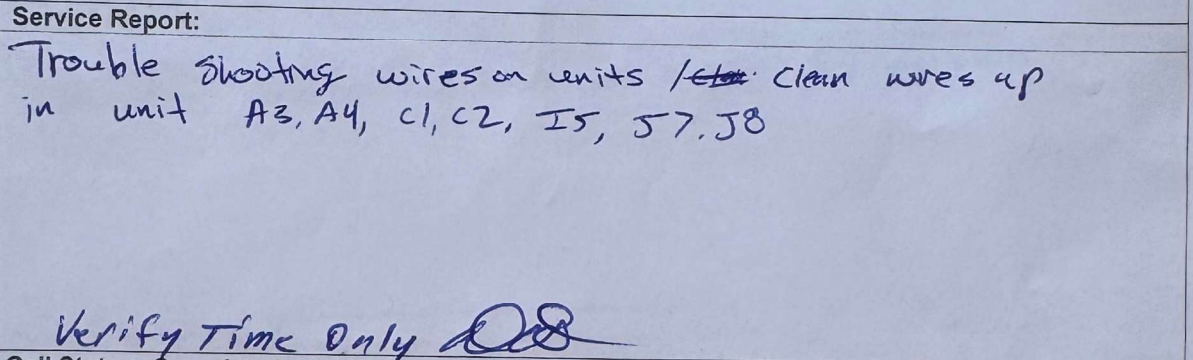 Service Report:
Trouble shooting wires on units / clean wires up
in unit A3, A4, C1, C2, I5, J7, J8
Verify Time Only